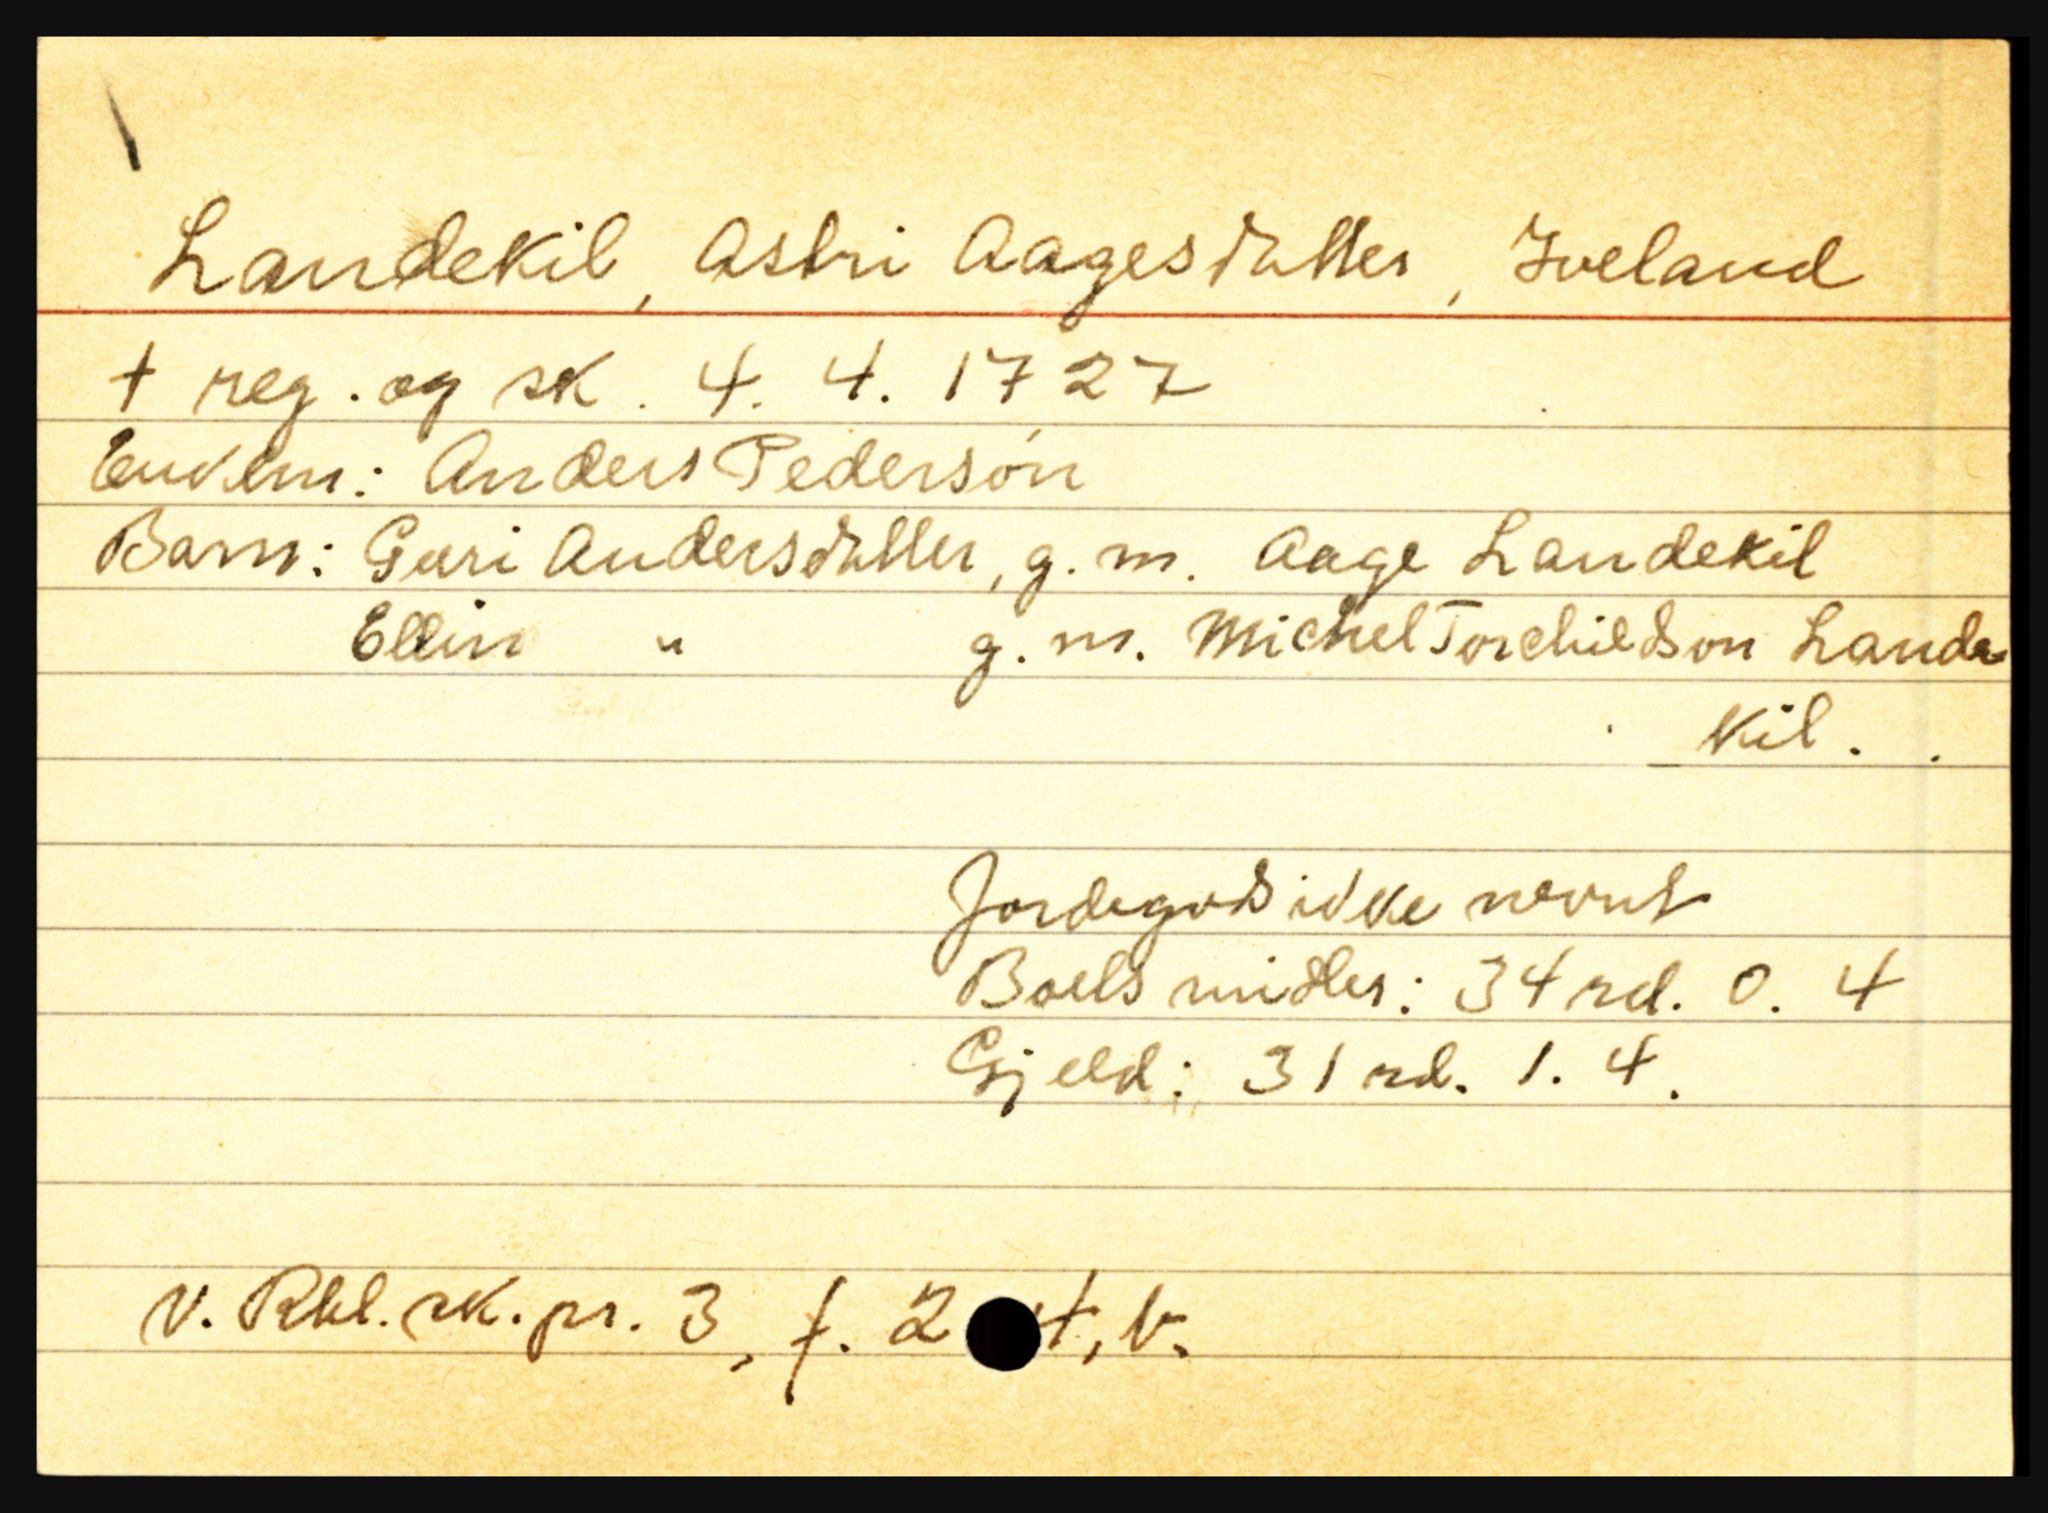 Landekil, Astri Aagesdatter, Iveland
† reg. og sk. 4. 4. 1727
Enkem: Anders Pedersøn
Barn: Guri Andersdatter, g. m. Aage Landekil
Ellin " g. m. Michel Torchildson Lande
kil.
Jordegods ikke nevnt
Boets midler: 34 rd. 0. 4
Gjeld: 31 rd. 1. 4.
V. Rbl. sk. pr. 3, f. 2 4, b.